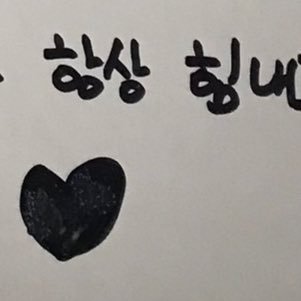 항상 힘내